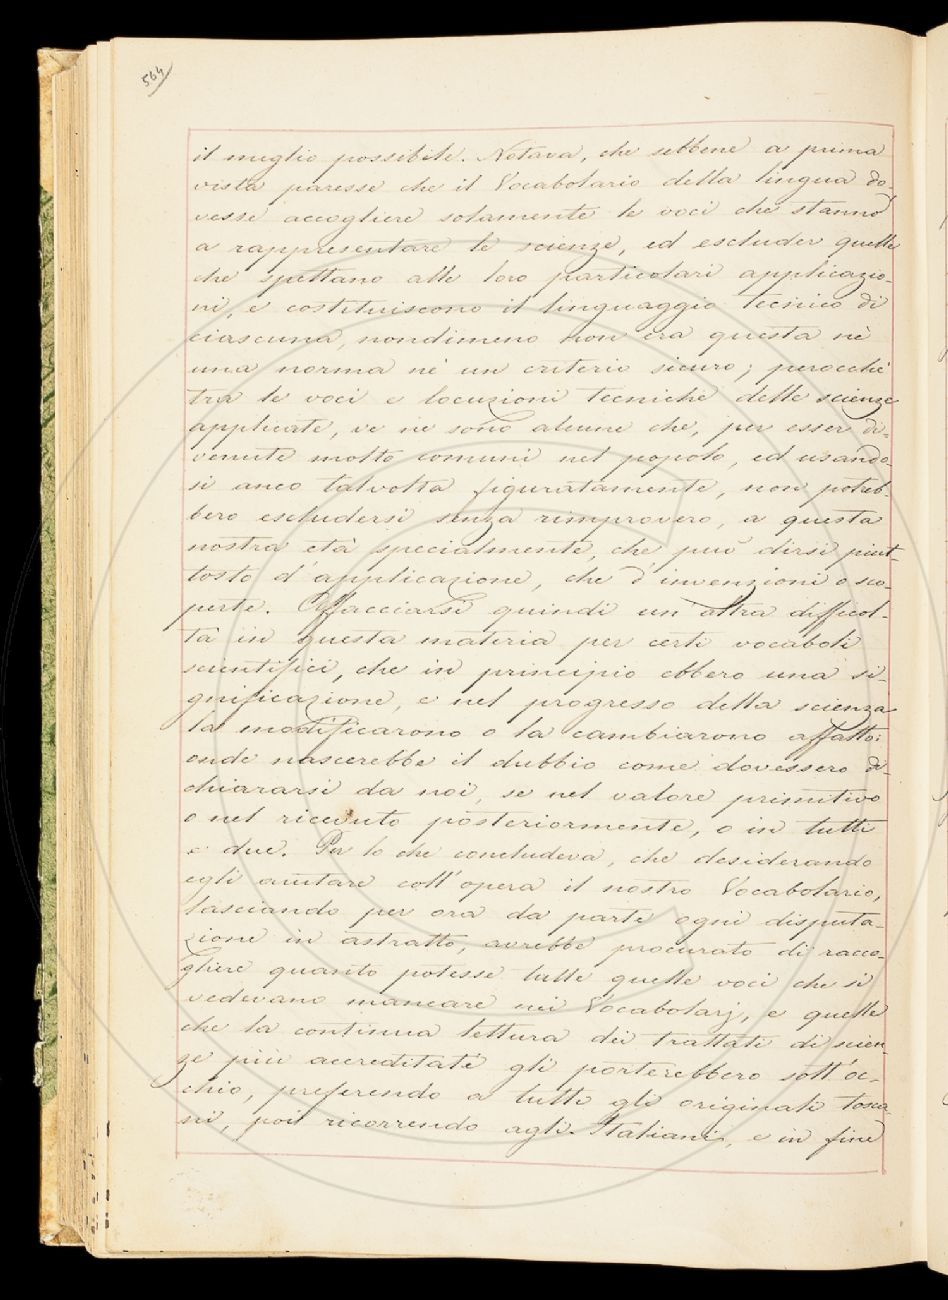 564
il meglio possibile. Notava, che sebbene a prima
vista paresse che il Vocabolario della lingua do-
vesse accogliere solamente le voci che stanno
a rappresentare le scienze, ed escluder quelle
che spettano alle loro particolari applicazio-
ni, e costituiscono il linguaggio tecnico di
ciascuna, nondimeno non era questa nè
una norma nè un criterio sicuro; perocchè
tra le voci e locuzioni tecniche delle scienze
applicate, ve ne sono alcune che, per esser di-
venute molto comuni nel popolo, ed usando-
si anco talvolta figuratamente, non potreb-
bero escludersi senza rimprovero, a questa
nostra età specialmente, che può dirsi piut-
tosto d'applicazione, che d'invenzioni o sco-
perte. Affacciarsi quindi un'altra difficol-
tà in questa materia per certi vocaboli
scientifici, che in principio ebbero una si-
gnificazione, e nel progresso della scienza
la modificarono o la cambiarono affatto:
onde nascerebbe il dubbio come dovessero di-
chiararsi da noi, se nel valore primitivo
o nel ricevuto posteriormente, o in tutti
e due. Per lo che concludeva, che desiderando
egli aiutare coll'opera il nostro Vocabolario,
lasciando per ora da parte ogni disputa-
zione in astratto, avrebbe procurato di racco-
gliere quanto potesse tutte quelle voci che si
vedevano mancare nei Vocabolarj, e quelle
che la continua lettura dei trattati di scien-
ze più accreditati gli porterebbero sott'oc-
chio, preferendo a tutti gli originali tosca-
ni, poi ricorrendo agli Italiani, e in fine